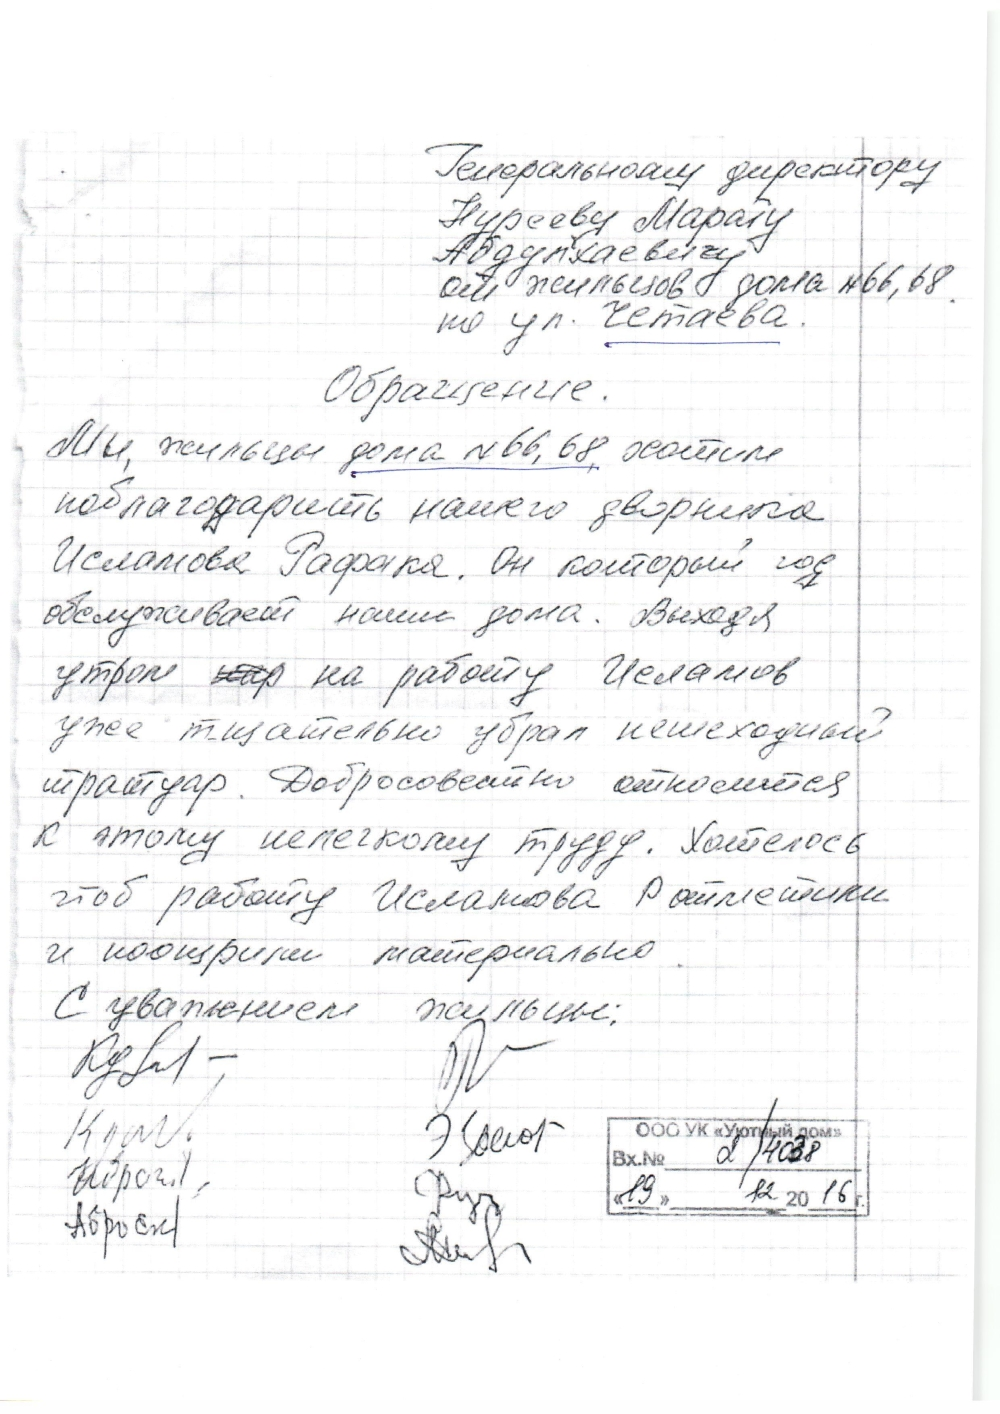 Генеральному директору
Нурееву Марату
Абдулхаевичу
от жильцов дома №66, 68.
по ул. Четаева.
Обращение.
Мы, жильцы дома №66, 68, хотим
поблагодарить нашего дворника
Исламова Рафака. Он который год
обслуживает наши дома. Выходя
утром на работу Исламов
уже тщательно убрал пешеходный
тратуар. Добросовестно относится
к этому нелегкому труду. Хотелось
чтоб работу Исламова Р отметили
и поощрили материально.
С уважением жильцы:
ООО УК «Уютный дом»
Вх.№ 2/4038
«19» 12 2016 г.